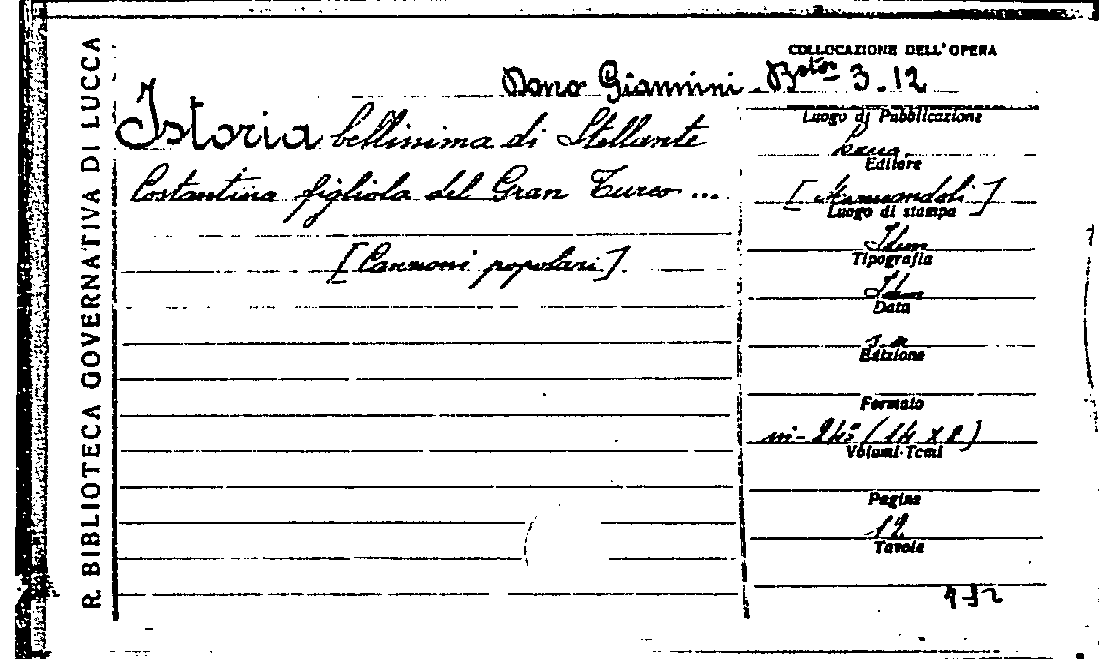 R. BIBLIOTECA GOVERNATIVA DI LUCCA
COLLOCAZIONE DELL'OPERA
Dono Giannini - Bster 3.12
Istoria bellissima di Stellante
Costantina figliola del Gran Turco ...
[Canzoni popolari]
Luogo di Pubblicazione
Lucca
Editore
Luogo di stampa
Idem
Tipografia
Idem
Data
Edizione
Formato
in-24° (14 x 8)
Volumi-Tomi
Pagine
12
Tavole